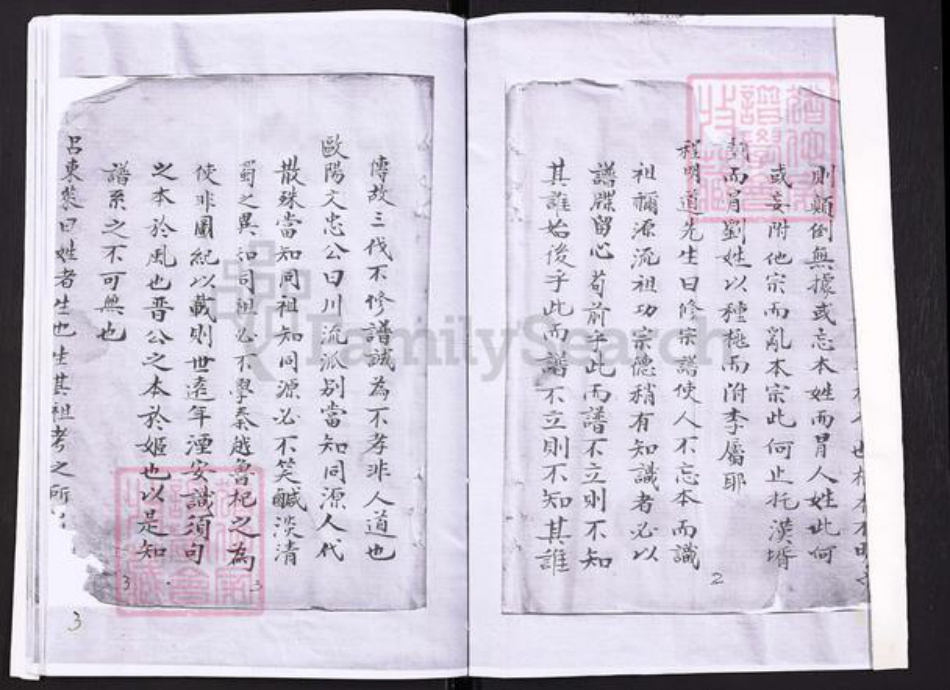 則顛倒無據或忘本姓而冒人姓此何
或妄附他宗而亂本宗此何止托漢壻
而冒劉姓以種桃而附李屬耶
程明道先生曰修宗譜使人不忘本而識
祖禰源流祖功宗德稍有知識者必以
譜牒留心苟前乎此而譜不立則不知
其誰始後乎此而譜不立則不知其誰
2
傳故三代不修譜誠為不孝非人道也
歐陽文忠公曰川流派别當知同源人代
散殊當知同祖知同源必不笑鹹淡清
蜀之異知同祖必不學秦越魯杞之為
使非圖紀以載則世遠年湮安識須句
之本於風也晋公之本於姬也以是知
譜系之不可無也
呂東萊曰姓者生也生其祖考之所
3
3
3
FamilySearch